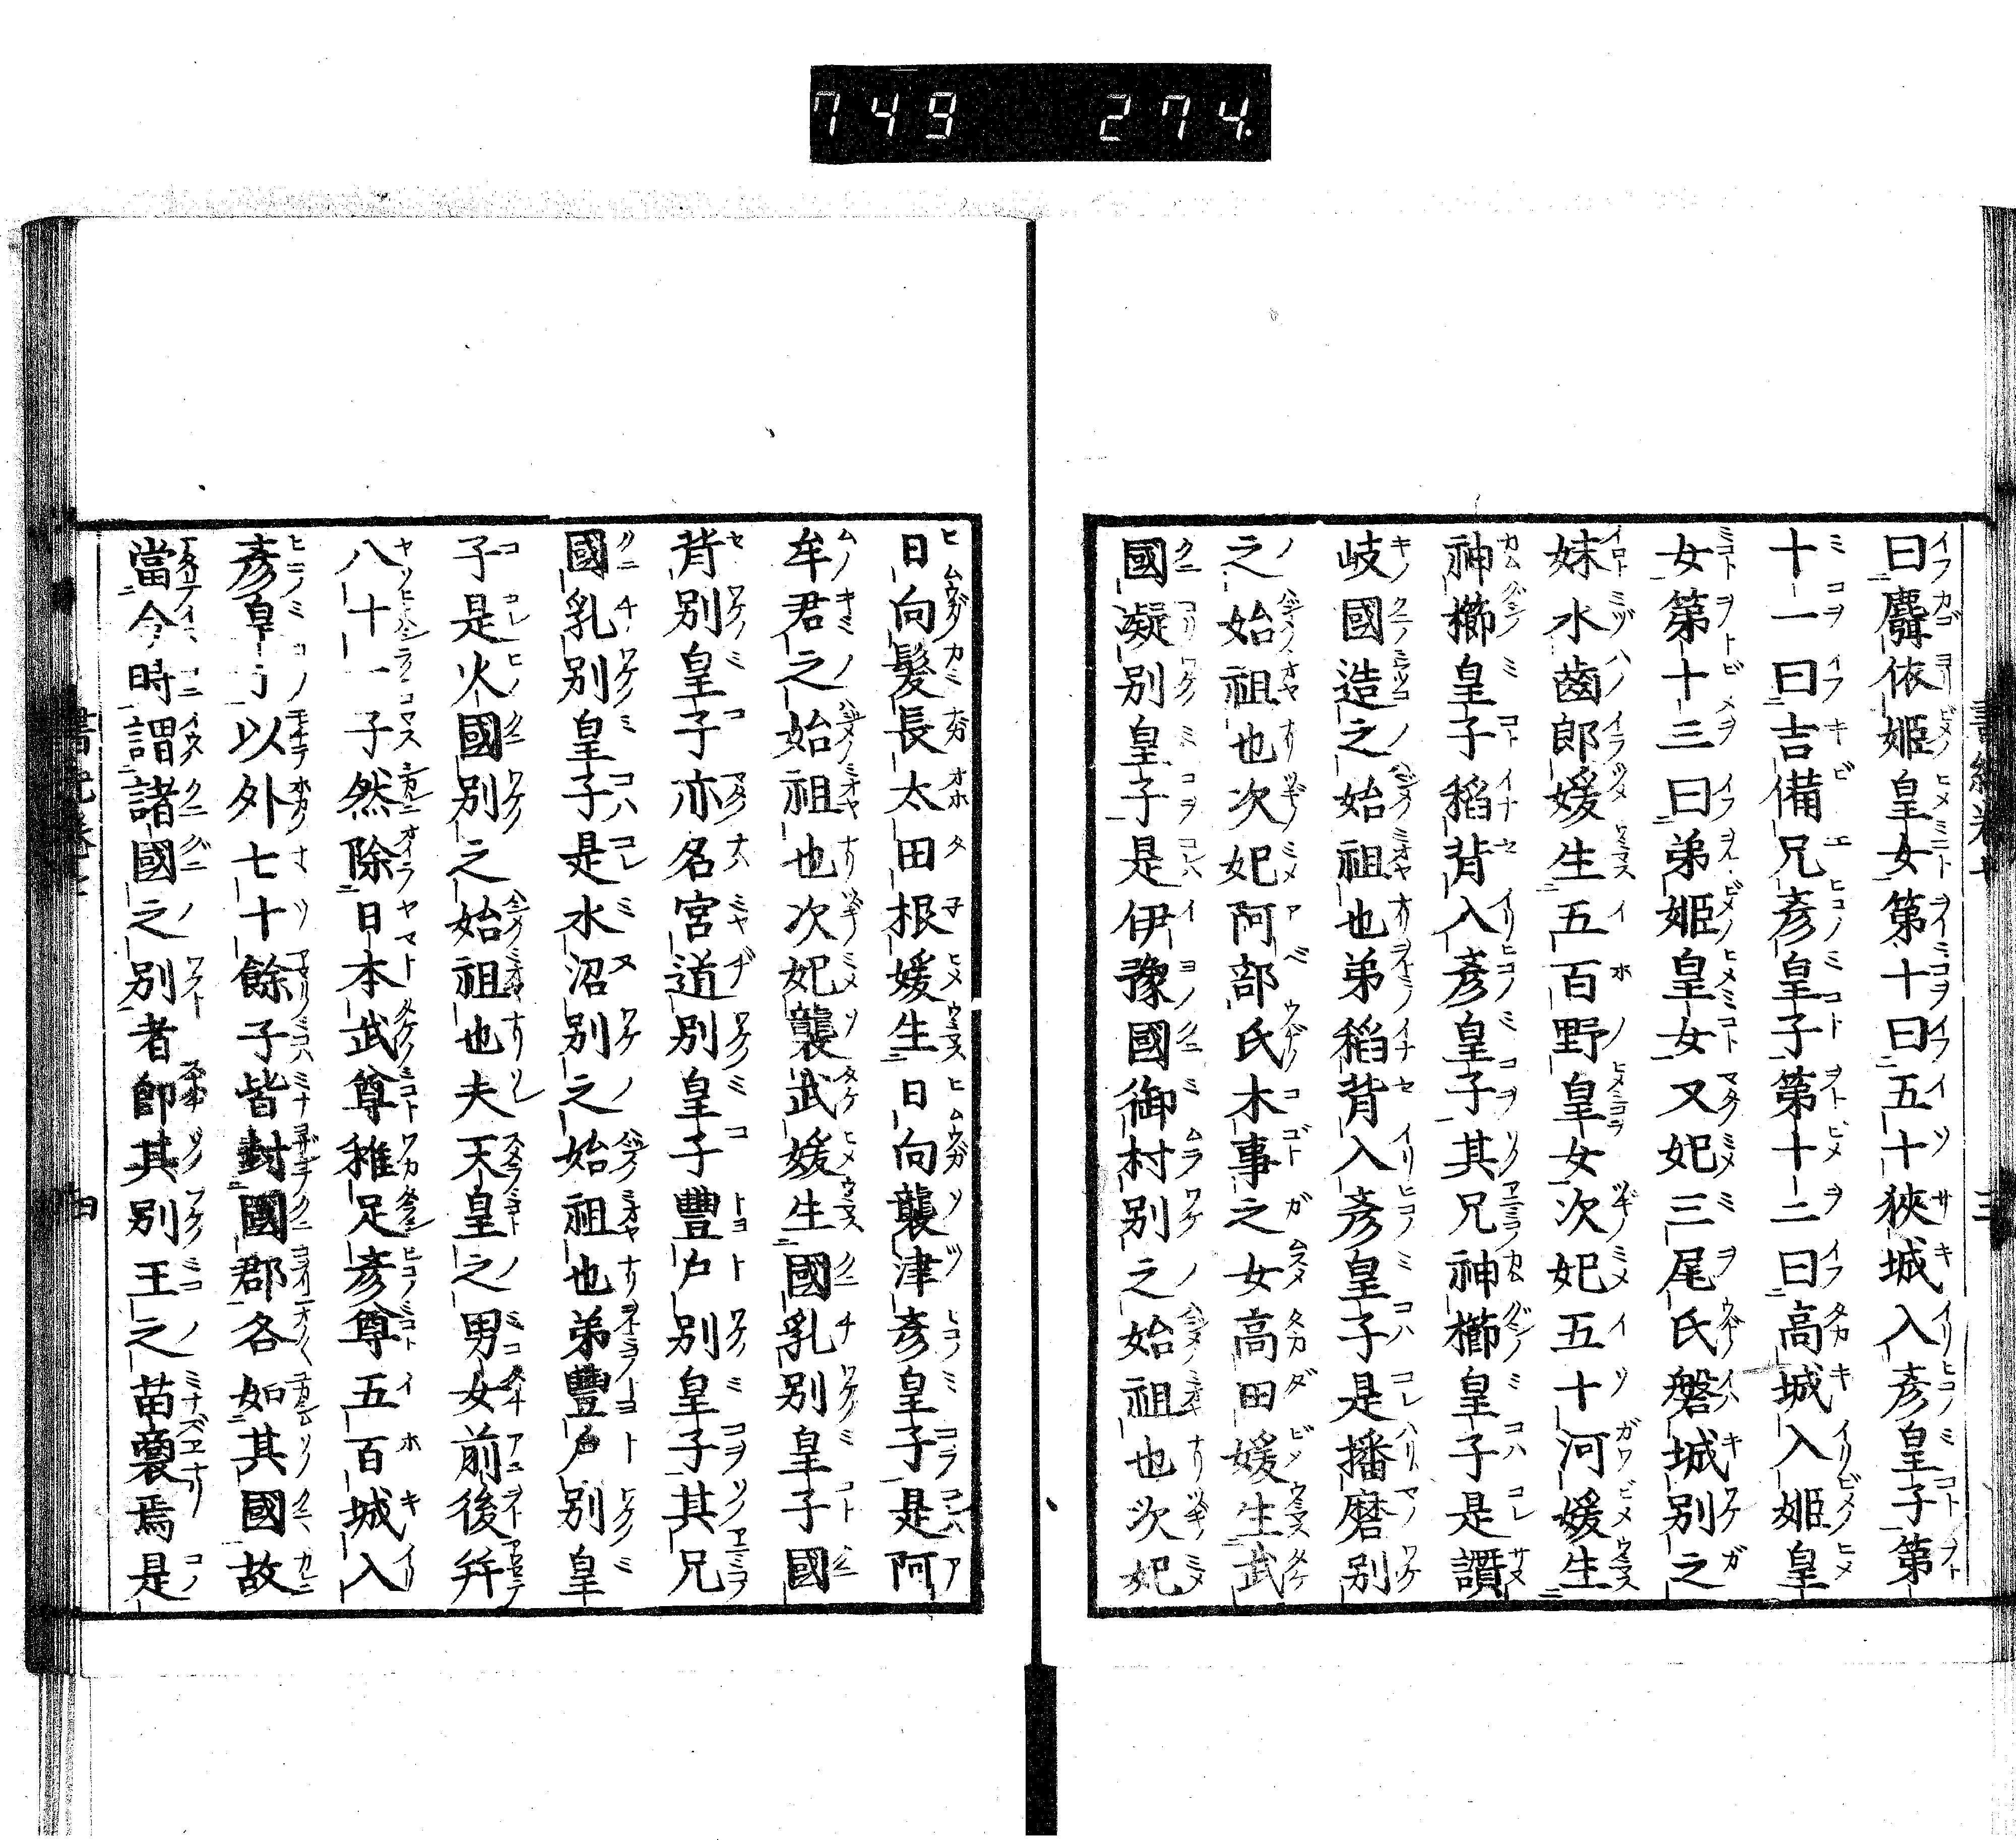 749 274
曰麛依姬皇女第十曰五十狹城入彥皇子第
十一曰吉備兄彥皇子第十二曰高城入姬皇
女第十三曰弟姬皇女又妃三尾氏磐城別之
妹水齒郎媛生五百野皇女次妃五十河媛生
神櫛皇子稻背入彥皇子其兄神櫛皇子是讃
岐國造之始祖也弟稻背入彥皇子是播磨別
之始祖也次妃阿部氏木事之女高田媛生武
國凝別皇子是伊豫國御村別之始祖也次妃
日向髮長太田根媛生日向襲津彥皇子是阿
牟君之始祖也次妃襲武媛生國乳別皇子國
背別皇子亦名宮道別皇子豐戶別皇子其兄
國乳別皇子是水沼別之始祖也弟豐戶別皇
子是火國別之始祖也夫天皇之男女前後幷
八十一子然除日本武尊稚足彥尊五百城入
彥皇子以外七十餘子皆封國郡各如其國故
當今時謂諸國之別者卽其別王之苗裔焉是